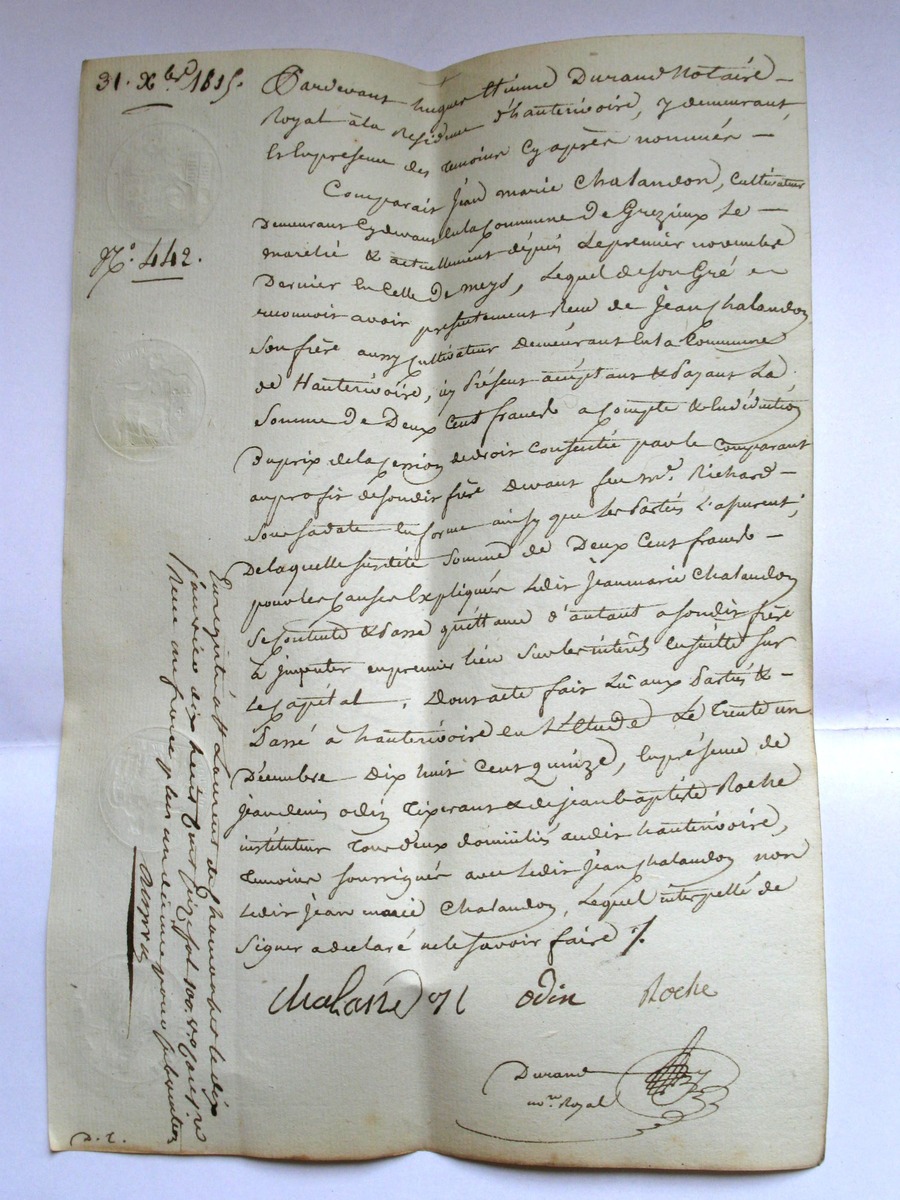 31. Xbre 1815.
No. 442.
Pardevant hugues Etienne Durand Notaire
Royal à la Residence d'hauterivoire, y demeurant
Et En presence des temoins Cy après nommés
Comparait Jean marie Chalandon, Cultivateur
Demeurant Cydevant en la Commune de Grezieux Le
marché & actuellement depuis Le premier novembre
Dernier En Celle de meys, Lequel de son Gré a
reconnu avoir presentement Reçu de Jean Chalandon
Son frère aussy Cultivateur Demeurant En La Commune
de Hauterivoire, icy Présent acceptant & Payant La
Somme de Deux Cent francs a Compte & En déduction
Du prix de la Cession de droits Consentie par le Comparant
au profit de son dit frère Devant feu Me. Richard
Sous sa date En forme ainsy que Les Parties L'assurent;
De laquelle susdite Somme de Deux Cent francs
pour les Causes Expliquées Ledit Jean marie Chalandon
Se contente & Passe quittance d'autant a son dit frère
à imputer en premier lieu Sur les intérêts Ensuitte Sur
Le Capital, Dont acte fait Lû aux Parties &
Passé à hauterivoire En L'Etude Le Trente un
Décembre Dix huit Cent quinze, En présence de
Jean denis odin Tixerant & de jean baptiste Roche
instituteur Tous deux domiciliés audit hauterivoire,
Temoins soussignés avec Ledit Jean Chalandon non
Ledit Jean marie Chalandon, Lequel interpellé de
Signer a déclaré ne le savoir faire ./.
odin Roche
Durand
nore Royal
Enregistré à St Laurent de chamousset le dix
janvier dix huit cent seize fol. 100.
Reçu un franc plus un décime pour subvention